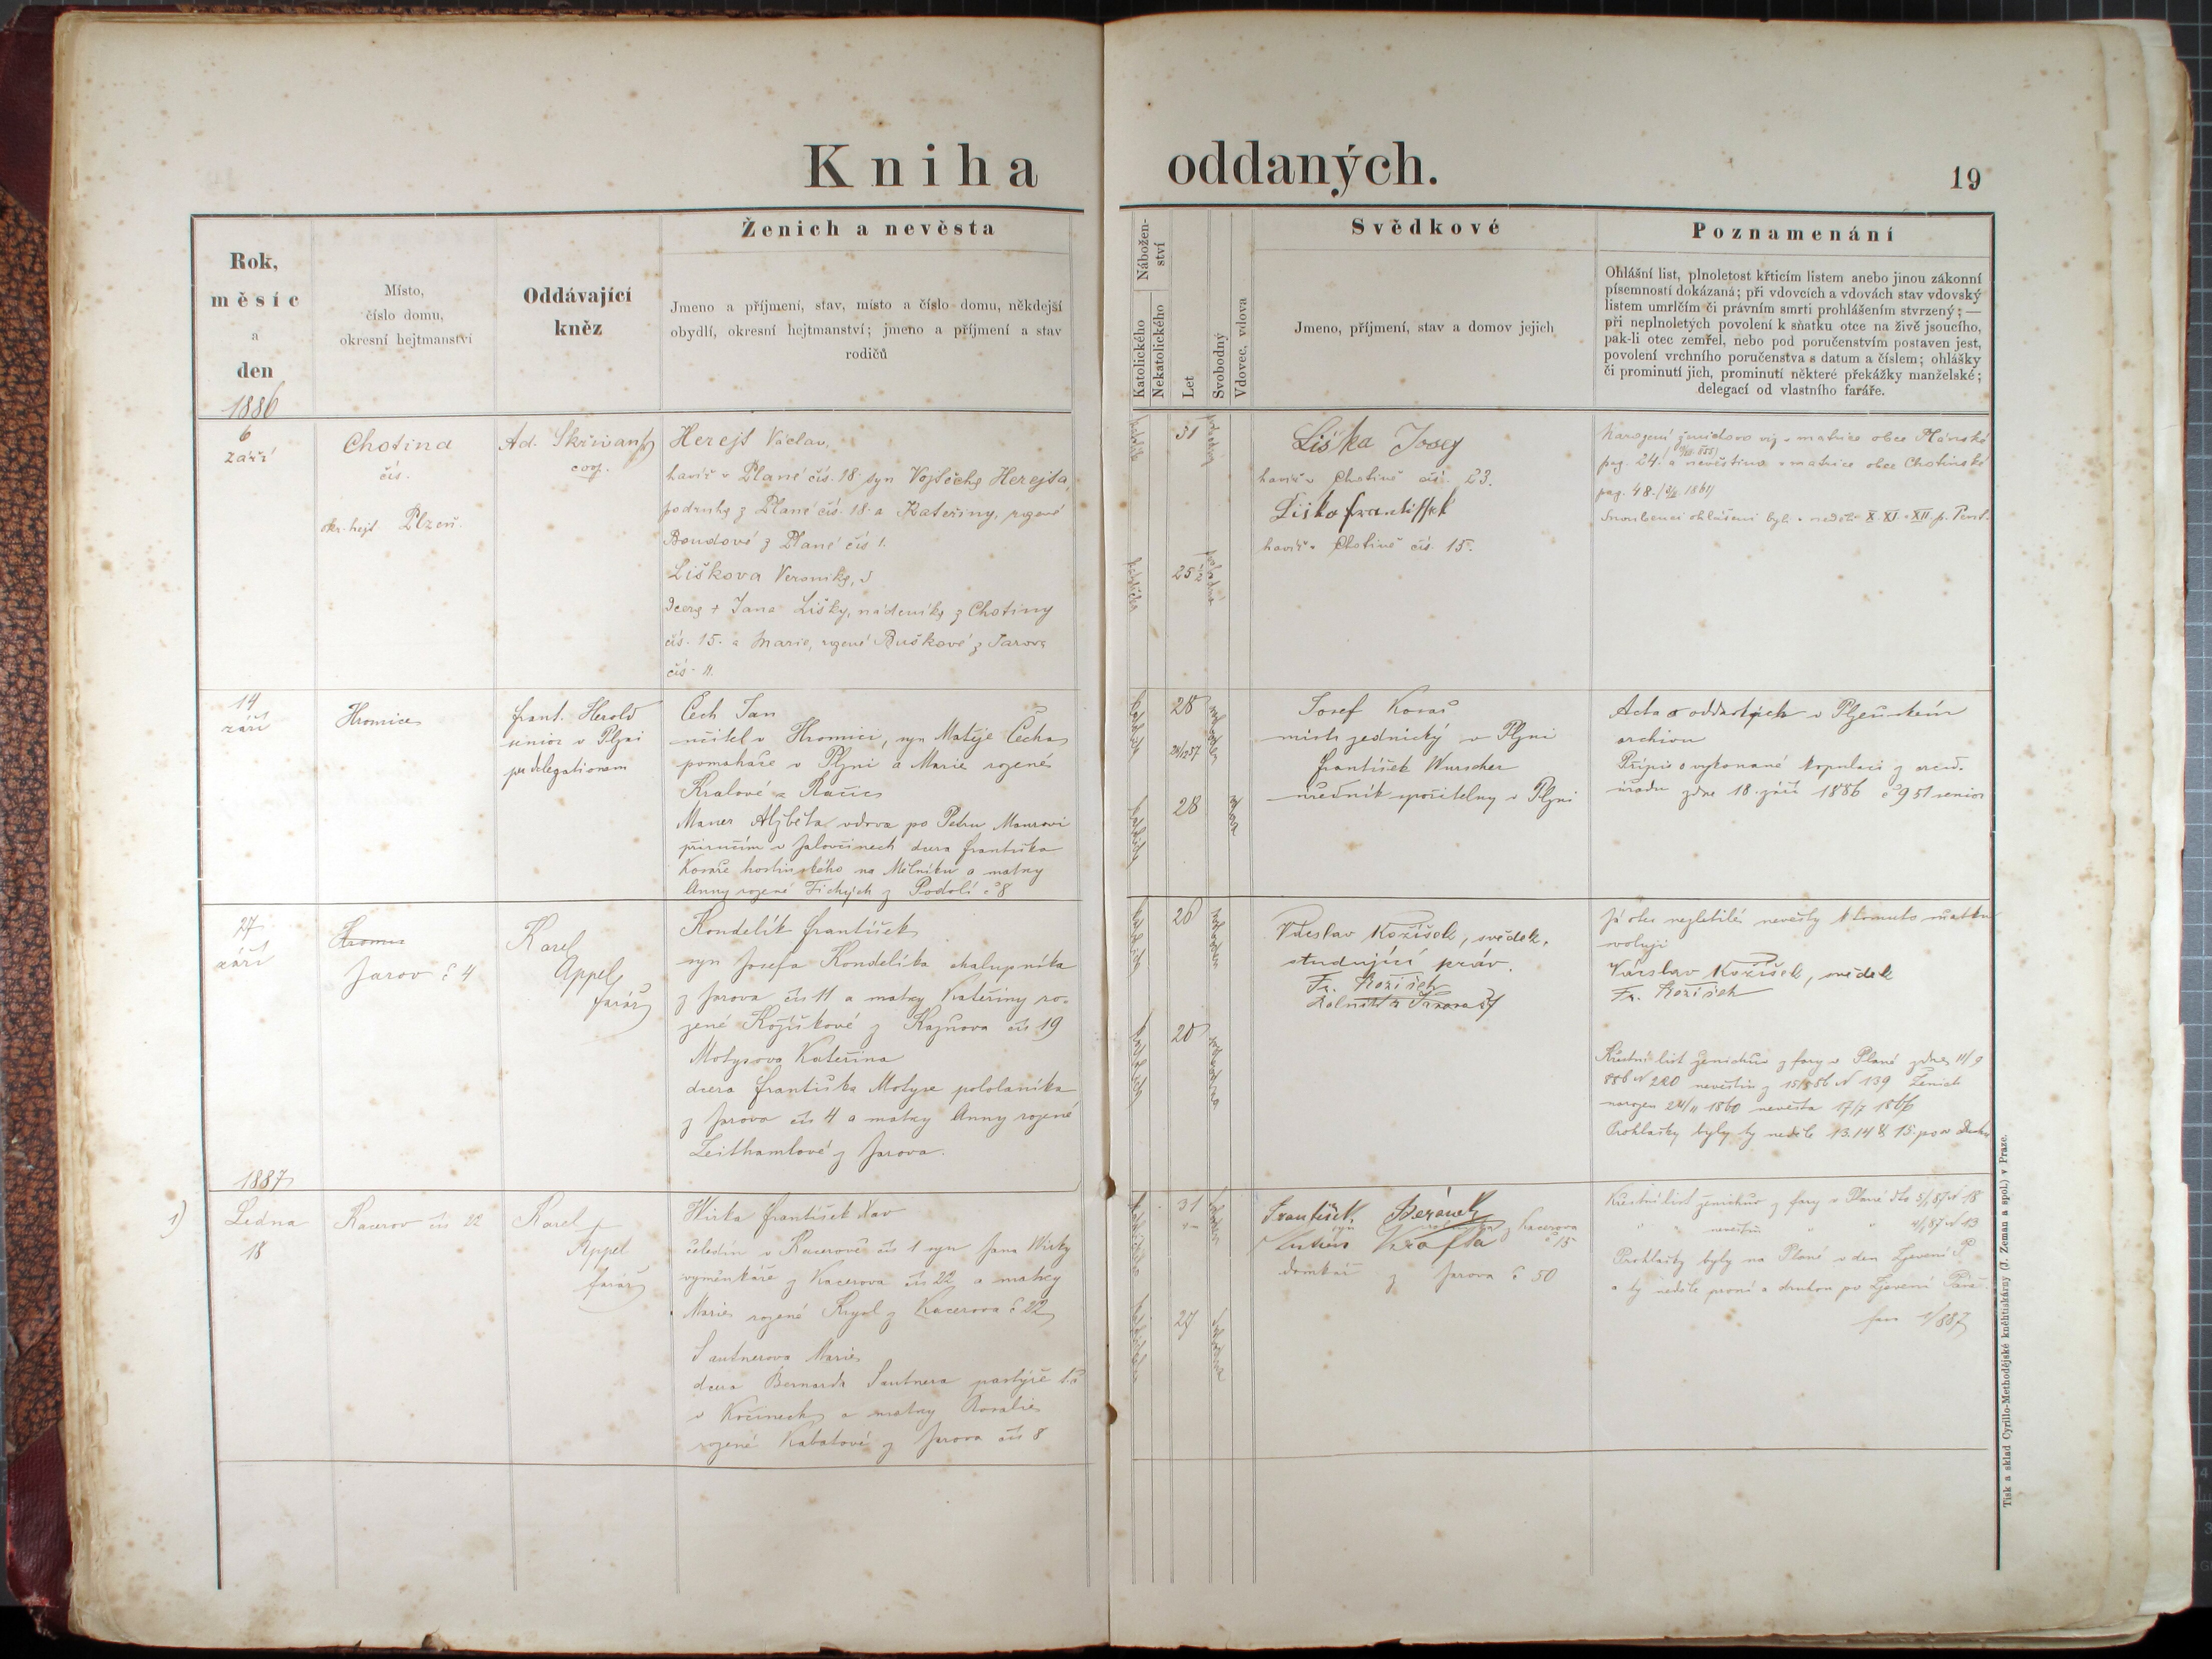 Kniha oddaných.
19
Rok,
měsíc
a
den
1886
Místo,
číslo domu,
okresní hejtmanství
Oddávající
kněz
Ženich a nevěsta
Jmeno a příjmení, stav, místo a číslo domu, někdejší
obydlí, okresní hejtmanství; jmeno a příjmení a stav
rodičů
Nábožen-
ství
Katolického
Nekatolického
Let
Svobodný
Vdovec, vdova
Svědkové
Jmeno, příjmení, stav a domov jejich
Poznamenání
Ohlášní list, plnoletost křticím listem anebo jinou zákonní
písemností dokázaná; při vdovcích a vdovách stav vdovský
listem umrlčím či právním smrti prohlášením stvrzený; —
při neplnoletých povolení k sňatku otce na živě jsoucího,
pak-li otec zemřel, nebo pod poručenstvím postaven jest,
povolení vrchního poručenstva s datum a číslem; ohlášky
či prominutí jich, prominutí některé překážky manželské;
delegací od vlastního faráře.
6
září
Chotina
čís.
okr. hejt. Plzeň.
Ad. Skřivan
coop.
Herejt Václav,
havíř v Plané čís. 18 syn Vojtěcha Herejta,
podruha z Plané čís. 18. a Kateřiny, rozené
Boudové z Plané čís 1.
Liškova Veronika,
dcera + Jana Lišky, nádeníka z Chotiny
čís. 15. a Marie, rozené Buškové z Jarova
čís. 4.
31
25½
Liška Josef
havíř v Chotině čís. 23.
Liška Frantissek
havíř v Chotině čís. 15.
Narození ženichovo viz v matrice obce Plánské
pag. 24. a nevěstino v matrice obce Chotinské
pag. 48.
Snoubenci ohlášeni byli v neděli X. XI. a XII p. Pent.
14
září
Hromice
Frant. Herold
senior v Plzni
per delegationem
Čech Jan
učitel v Hromici, syn Matěje Čecha
pomahače v Plzni a Marie rozené
Kralové z Račic
Maner Alžběta vdova po Petru Manrovi
v Jalovčinech dcera Františka
Kováře hostinského na Mělníku a matky
Anny rozené Tichých z Podolí č 8
28
28
vdova
Josef Kovař
mistr zednický v Plzni
František Wurscher
úředník spořitelny v Plzni
Acta o oddavkách v Plzeňském
archivu
Přípis o vykonané kopulaci z arcid.
úřadu zdne 18. září 1886 č 951 senior
27
září
Jarov č 4
Karel
Appel
farář
Kondelík František
syn Josefa Kondelíka chalupníka
z Jarova čís 11 a matky Kateřiny ro-
zené Kožíškové z Kaznova čís 19
Motysova Kateřina
dcera Františka Motyse pololaníka
z Jarova čís 4 a matky Anny rozené
Leithamlové z Jarova.
26
20
Václav Kožíšek, svědek,
studující práv.
Fr. Kožíšek
Já otec nezletilé nevěsty k tomuto sňatku
svoluji
Václav Kožíšek, svědek
Fr. Kožíšek
Křestní list ženichův z fary v Plané zdne 11/9
886 N 220 nevěstin z N 139 Ženich
narozen 24/11 1860 nevěsta 17/7 1866
Prohlašky byly ty neděle 13. 14 & 15. po
1887
1)
Ledna
18
Kacerov čís 22
Karel
Appel
farář
Wirka František Xav
čeledín v Kacerově čís 1 syn Jana Wirky
vyměnkáře z Kacerova čís 22 a matky
Marie rozené z Kacerova č 22
Santnerova Marie
dcera Bernarda Santnera pastýře
v Kočinech a matky Rosalie
rozené Kabatové z Jarova čís 8
31
27
František Beránek
syn rolníka z Kacerova
č 15
Krofta
domkář z Jarova č 50
Křestní list ženichův z fary v Plané dto 5/1 87 N 18
" " nevěstin " " 4/1 87 N 13
Prohlašky byly na Plané v den Zjevení P.
a ty neděle první a druhou po Zjevení Páně.
Tisk a sklad Cyrillo-Methodějské knihtiskárny (J. Zeman a spol.) v Praze.